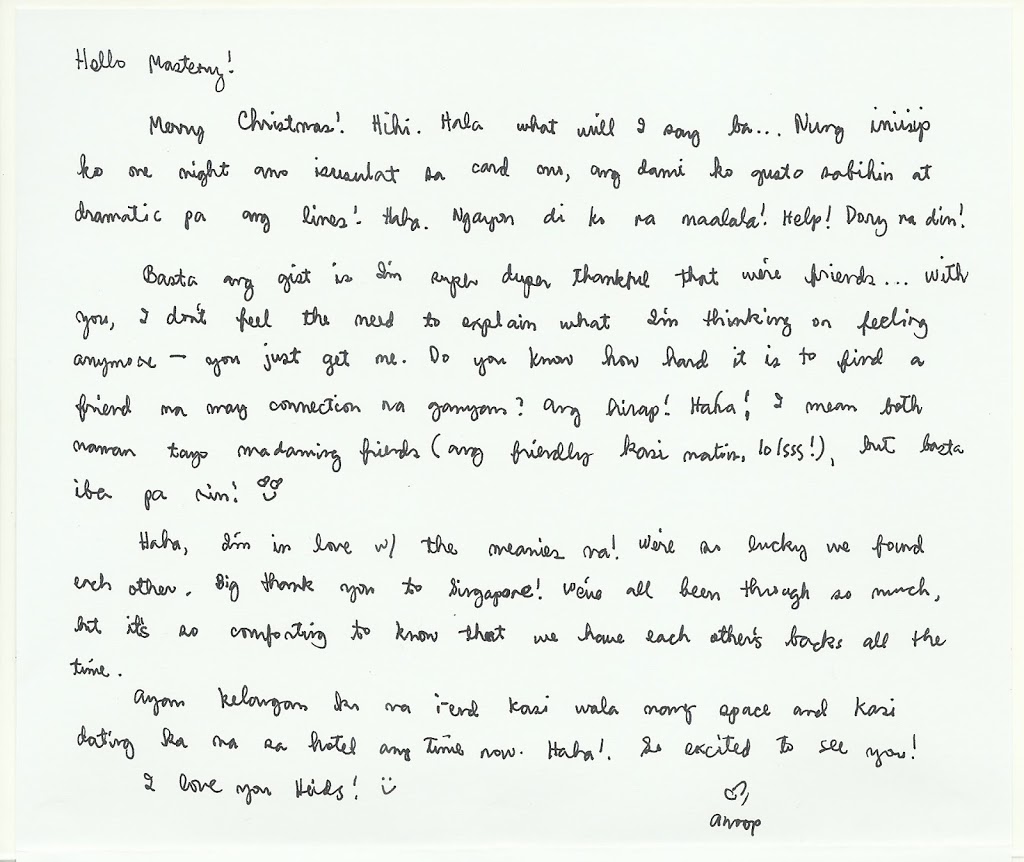 Hello Masterny!
Merry Christmas! Hihi. Hala what will I say ba... Nung iniisip
ko one night ano isusulat sa card mo, ang dami ko gusto sabihin at
dramatic pa ang lines! Haha. Ngayon di ko na maalala! Help! Dory na din!
Basta ang gist is I'm super duper thankful that we're friends... with
you, I don't feel the need to explain what I'm thinking or feeling
anymore - you just get me. Do you know how hard it is to find a
friend na may connection na ganyan? Ang hirap! Haha! I mean both
naman tayo madaming friends (ang friendly kasi natin, lolsss!), but basta
iba pa rin!
Haha, I'm in love w/ the meanies na! We're so lucky we found
each other. Big thank you to Singapore! We've all been through so much,
but it's so comforting to know that we have each other's backs all the
time.
Ayan kelangan ko na i-end kasi wala nang space and kasi
dating ka na sa hotel any time now. Haha! So excited to see you!
I love you Heids!
anoop